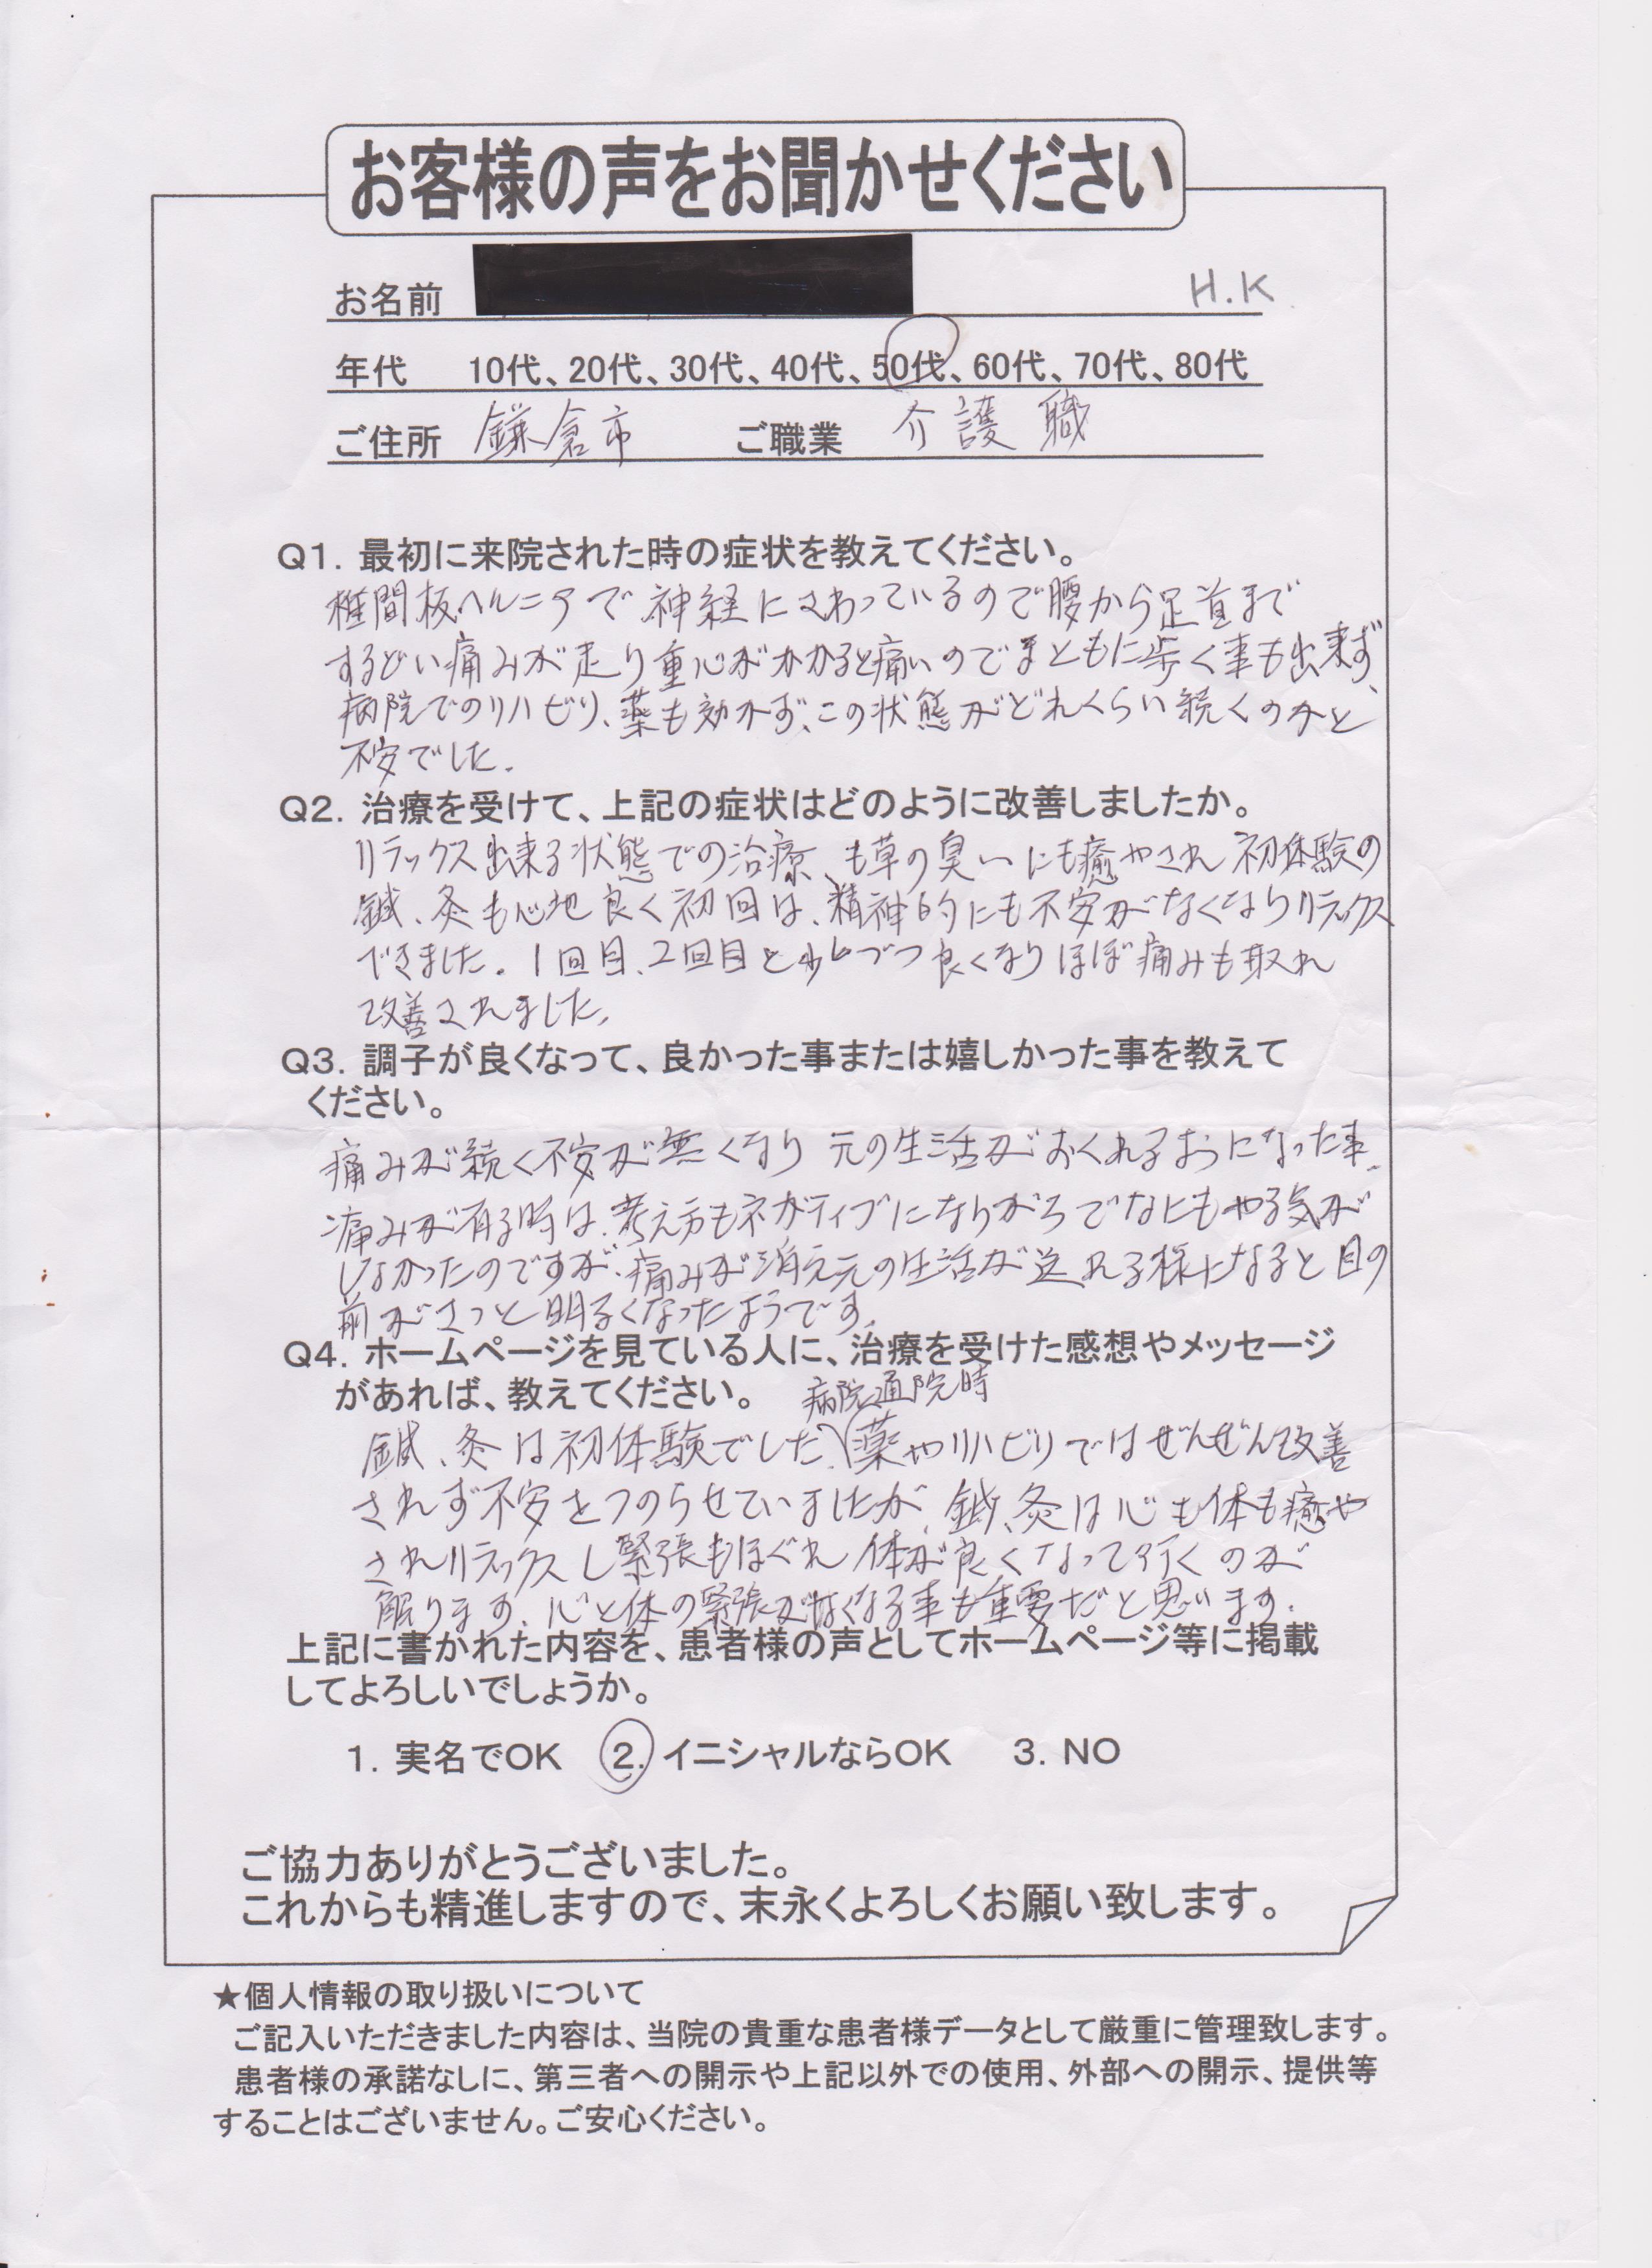 お客様の声をお聞かせください
お名前 H.K
年代 10代、20代、30代、40代、50代、60代、70代、80代
ご住所 鎌倉市 ご職業 介護職
Q1. 最初に来院された時の症状を教えてください。
椎間板ヘルニアで神経にさわっているので腰から足首まで
するどい痛みが走り重心がかかると痛いのでまともに歩く事も出来ず、
病院でのリハビリ、薬も効かず、この状態がどれくらい続くのかと
不安でした。
Q2. 治療を受けて、上記の症状はどのように改善しましたか。
リラックス出来る状態での治療、も草の臭いにも癒やされ初体験の
鍼、灸も心地良く初回は、精神的にも不安がなくなりリラックス
できました。1回目、2回目と少しづつ良くなりほぼ痛みも取れ
改善されました。
Q3. 調子が良くなって、良かった事または嬉しかった事を教えて
ください。
痛みが続く不安が無くなり元の生活がおくれるおになった事、
痛みが有る時は、考え方もネガティブになりがちでなにもやる気が
しなかったのですが、痛みが消え元の生活が送れる様になると目の
前がさっと明るくなったようです。
Q4. ホームページを見ている人に、治療を受けた感想やメッセージ
があれば、教えてください。
病院通院時
鍼、灸は初体験でした。薬やリハビリではぜんぜん改善
されず不安をつのらせていましたが、鍼、灸は心も体も癒や
されリラックスし緊張もほぐれ体が良くなって行くのが
解ります。心と体の緊張がなくなる事も重要だと思います。
上記に書かれた内容を、患者様の声としてホームページ等に掲載
してよろしいでしょうか。
1. 実名でOK 2. イニシャルならOK 3. NO
ご協力ありがとうございました。
これからも精進しますので、末永くよろしくお願い致します。
★個人情報の取り扱いについて
ご記入いただきました内容は、当院の貴重な患者様データとして厳重に管理致します。
患者様の承諾なしに、第三者への開示や上記以外での使用、外部への開示、提供等
することはございません。ご安心ください。